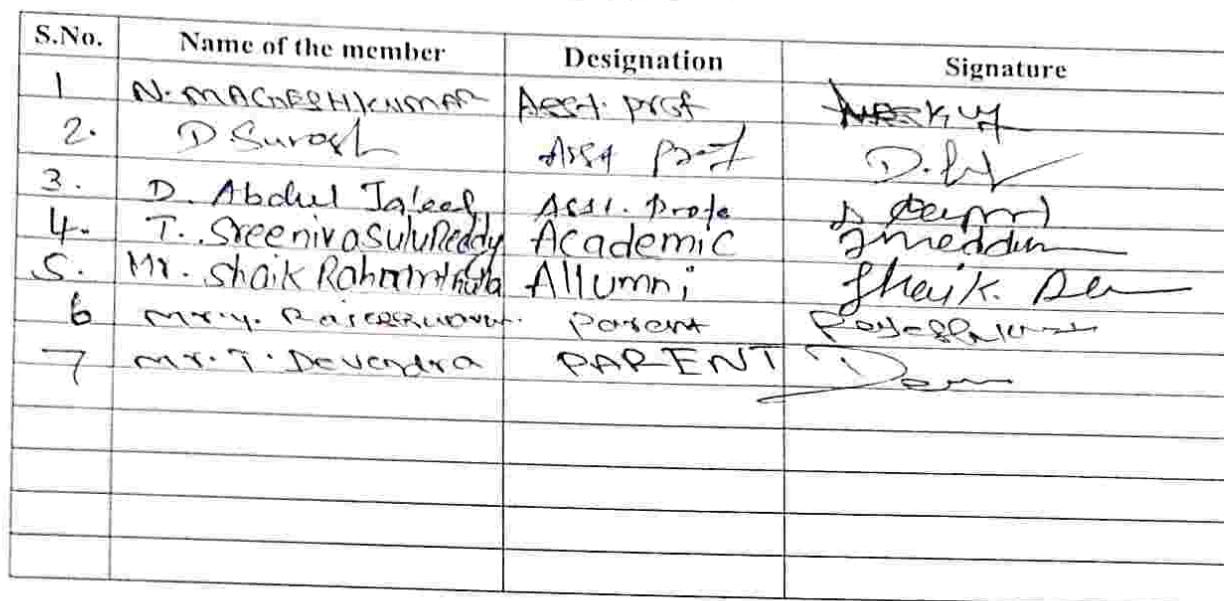 S.No. Name of the member Designation Signature
1 N. MAGESHKUMAR Asst. prof
2. D. Suresh Asst prof
3. D. Abdul Jaleel Asst. Profe
4. T. Sreenivasulu Reddy Academic
5. Mr. Shaik Rahamthulla Allumni Shaik.
6 Mr. Y. Parent
7 Mr. T. Devendra PARENT